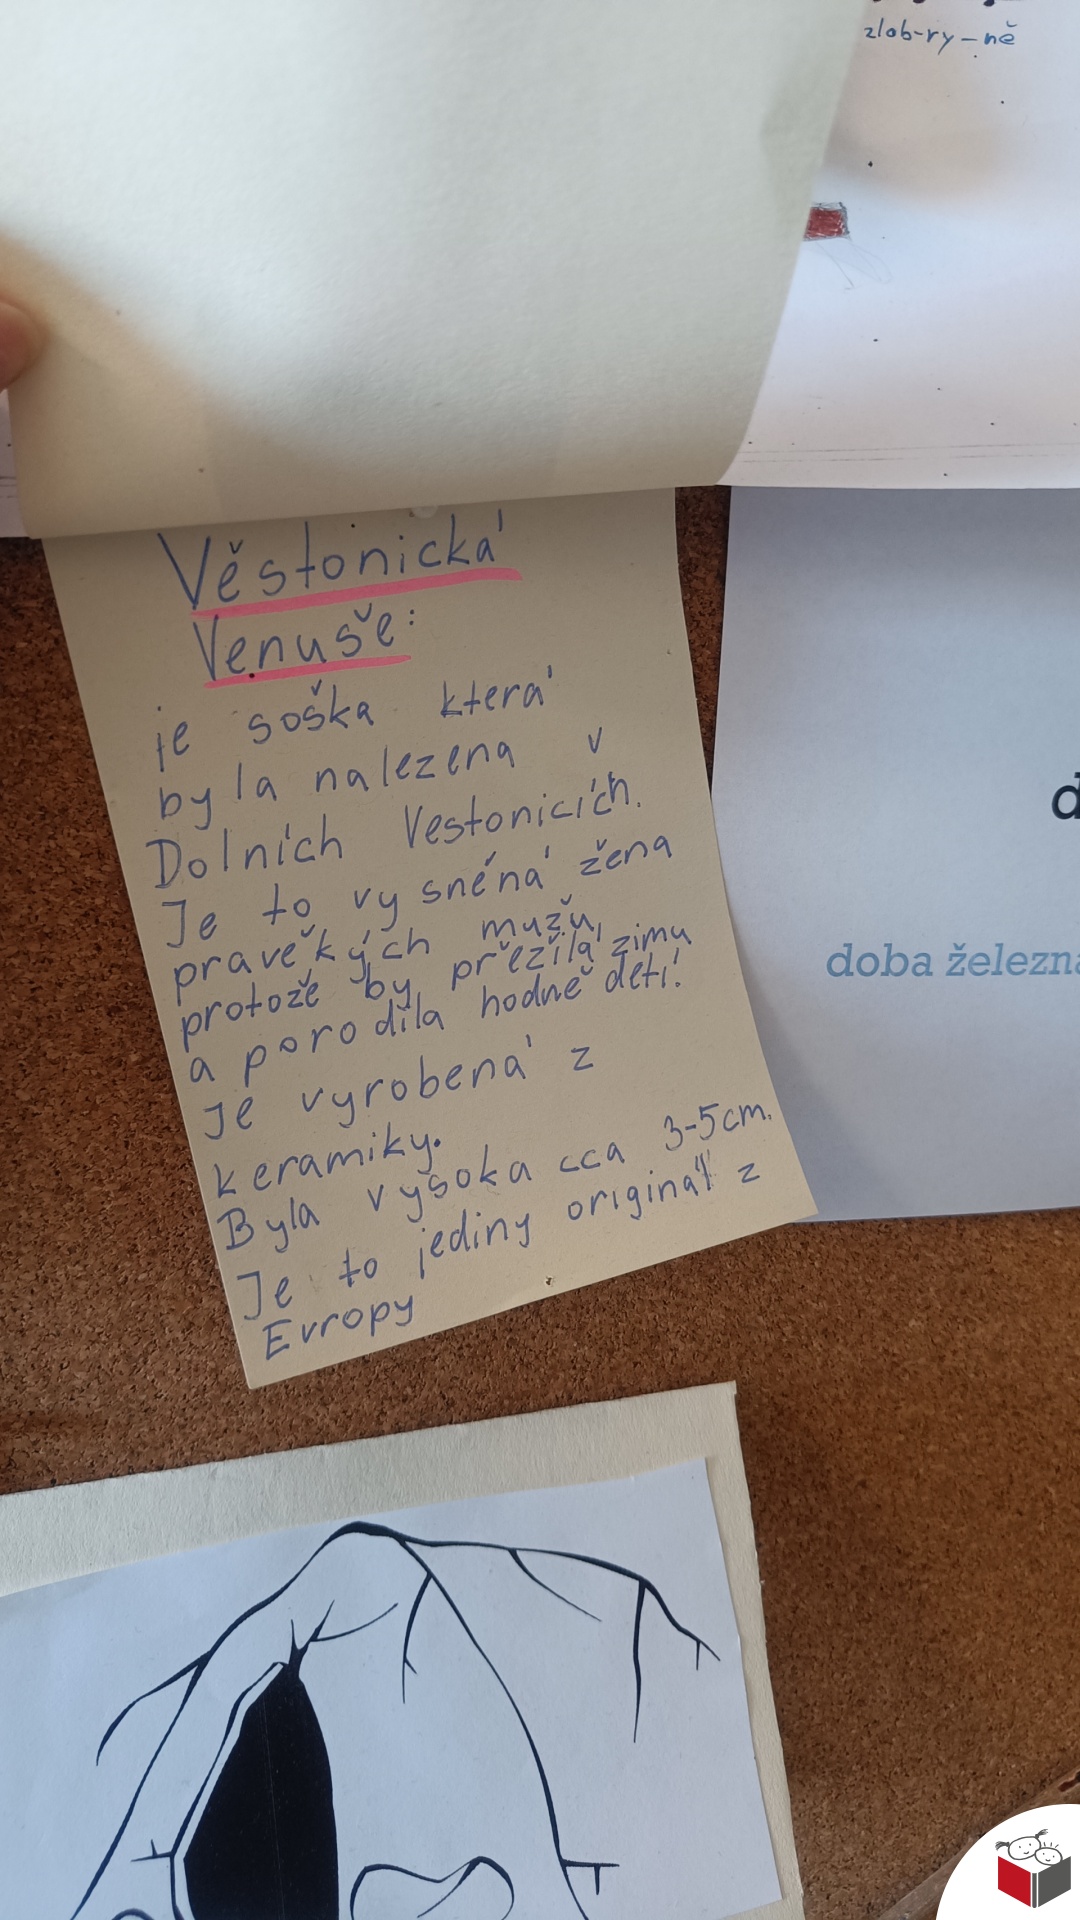 zlob-ry-ně
Věstonická
Venuše:
je soška která
byla nalezena v
Dolních Vestonicích.
Je to vysněná žena
pravěkých mužu,
protože by přežila zimu
a porodila hodně dětí!
Je vyrobená z
keramiky.
Byla vysoka cca 3-5cm.
Je to jediny originál z
Evropy
d
doba železna